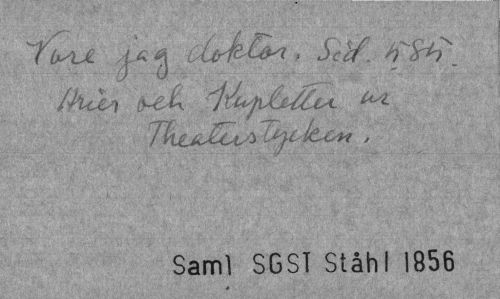 Vore jag doktor. Sid. 584.
Arier och Kupletter ur
Theaterstycken.
Saml SGST Ståhl 1856